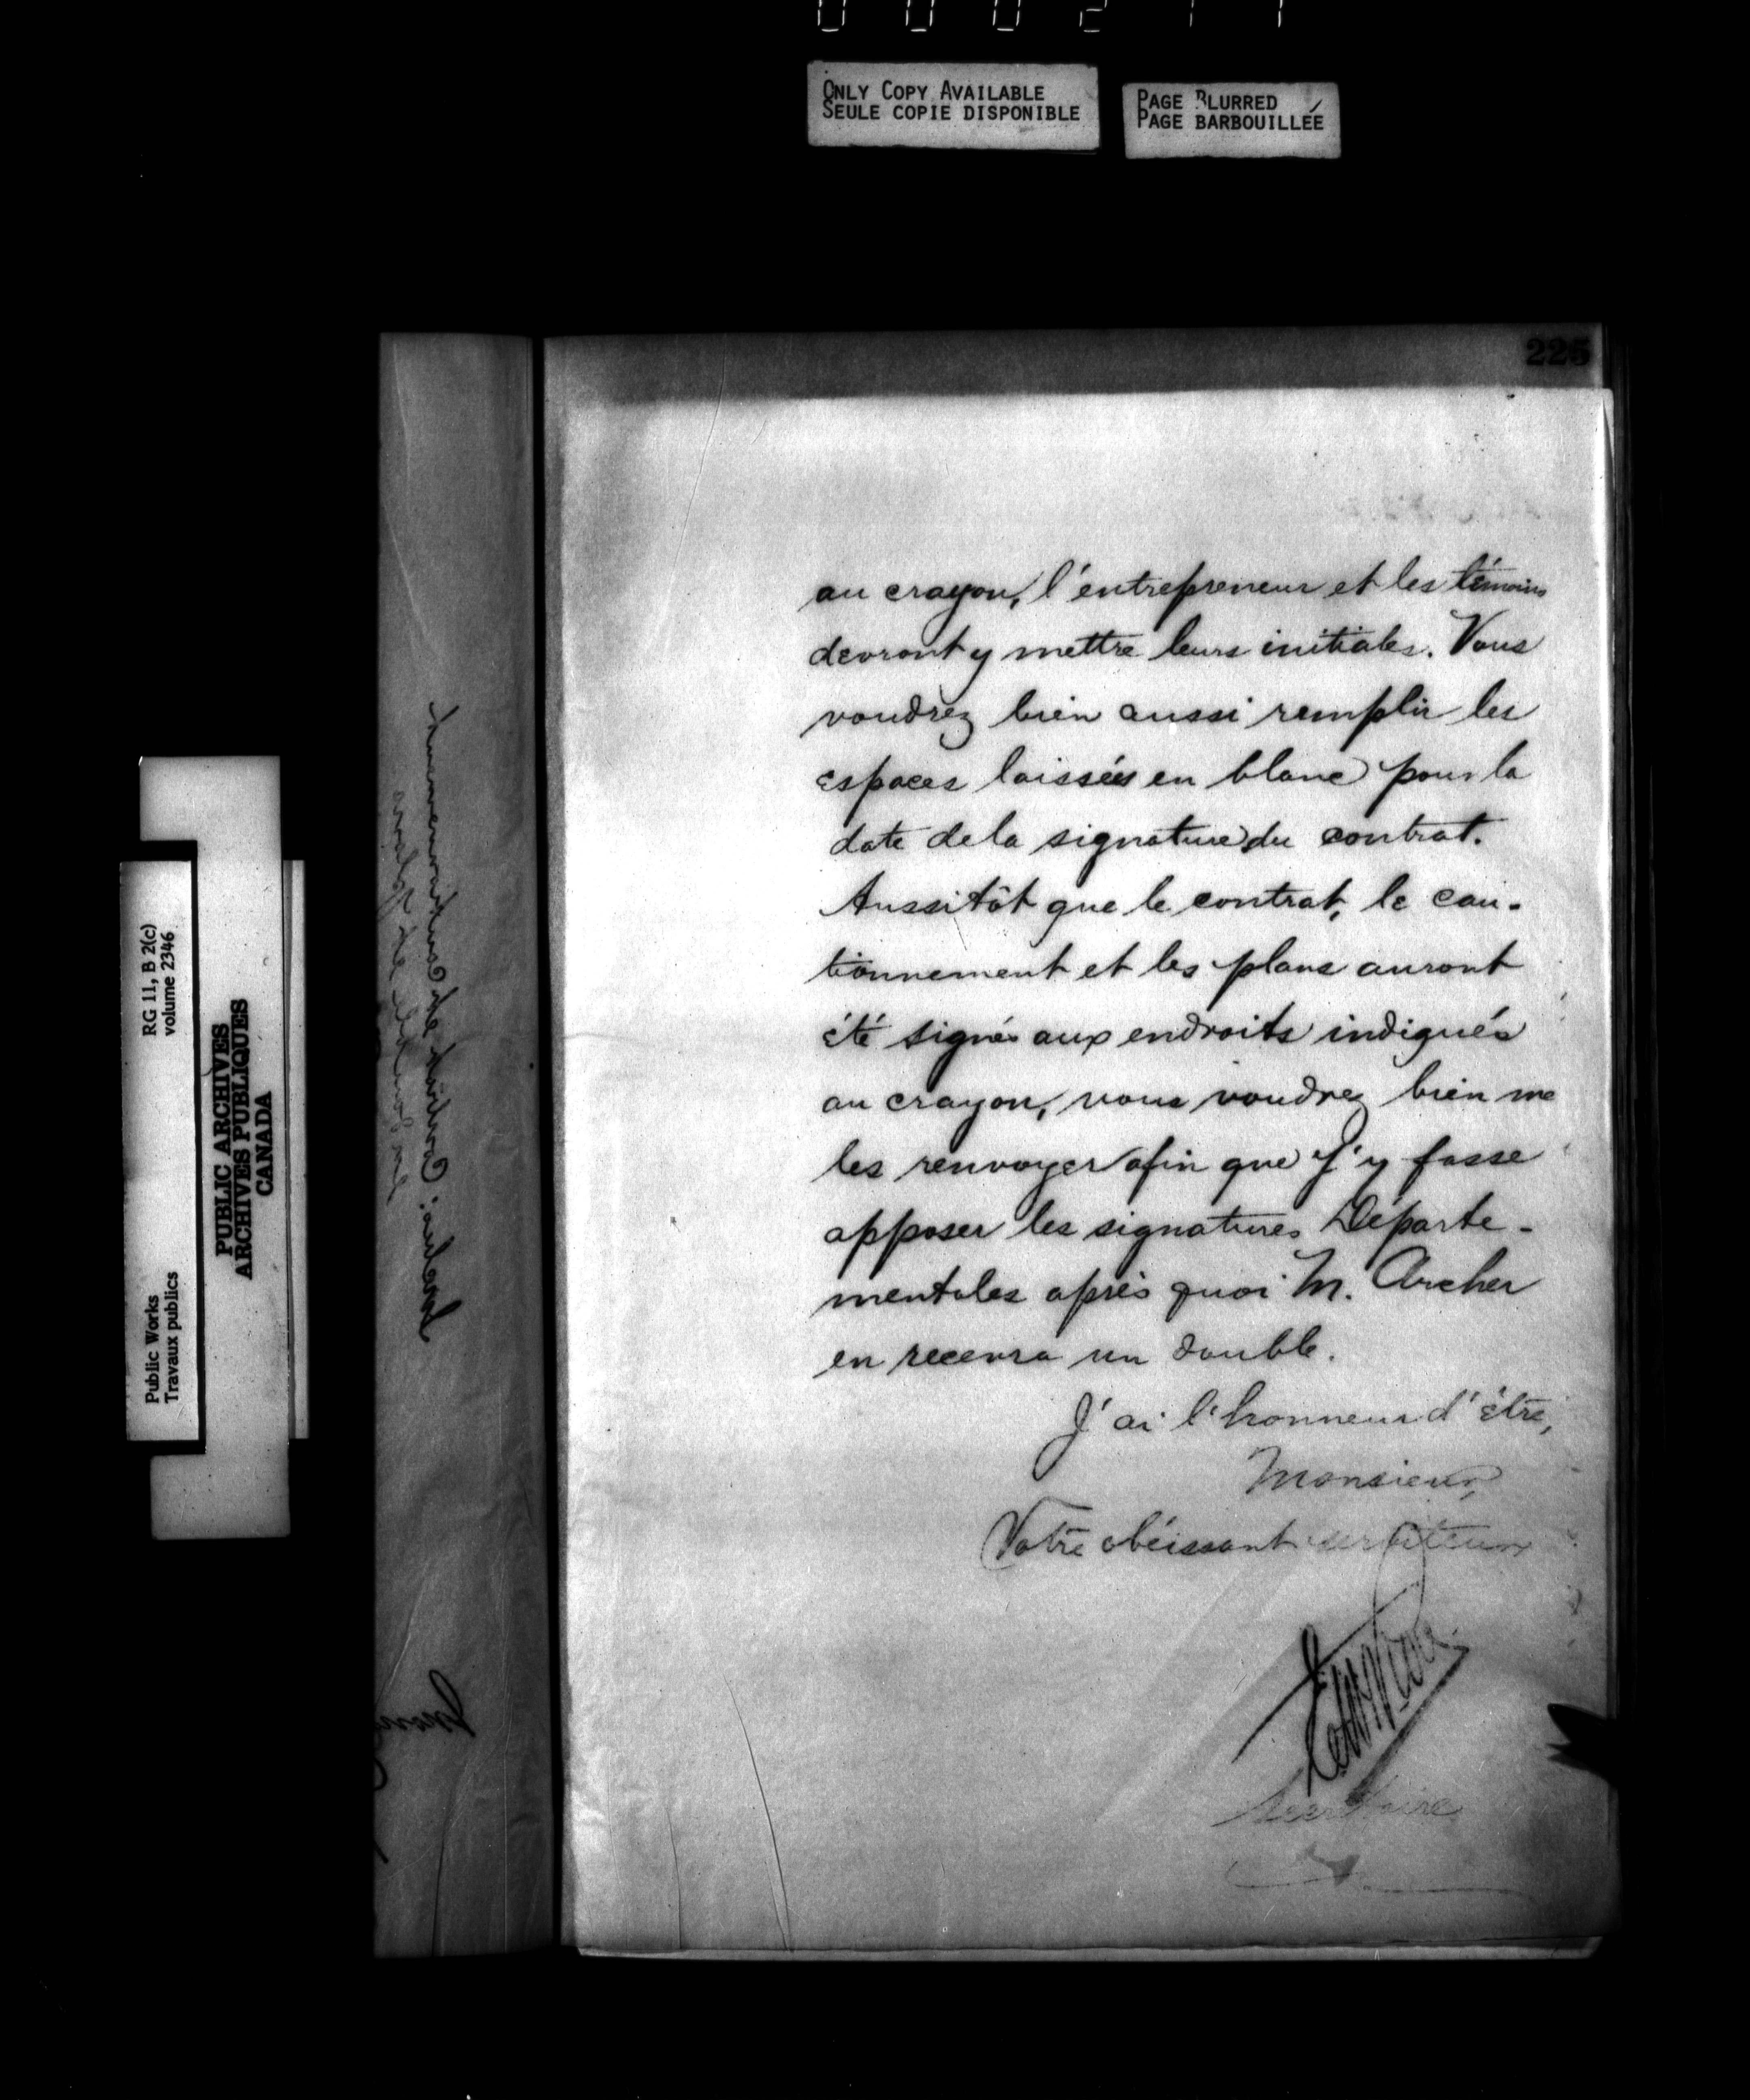 ONLY COPY AVAILABLE
SEULE COPIE DISPONIBLE
PAGE BLURRED
PAGE BARBOUILLÉE
225
au crayon, l'entrepreneur et les témoins
devront y mettre leurs initiales. Vous
voudrez bien aussi remplir les
espaces laissées en blanc pour la
date de la signature du contrat.
Aussitôt que le contrat, le cau-
tionnement et les plans auront
été signés aux endroits indiqués
au crayon, vous voudrez bien me
les renvoyer afin que j'y fasse
apposer les signatures Départe-
mentales après quoi M. Archer
en recevra un double.
J'ai l'honneur d'être,
Monsieur,
Votre obéissant serviteur
Secrétaire
RG 11, B 2(c)
volume 2346
Public Works
Travaux publics
PUBLIC ARCHIVES
ARCHIVES PUBLIQUES
CANADA